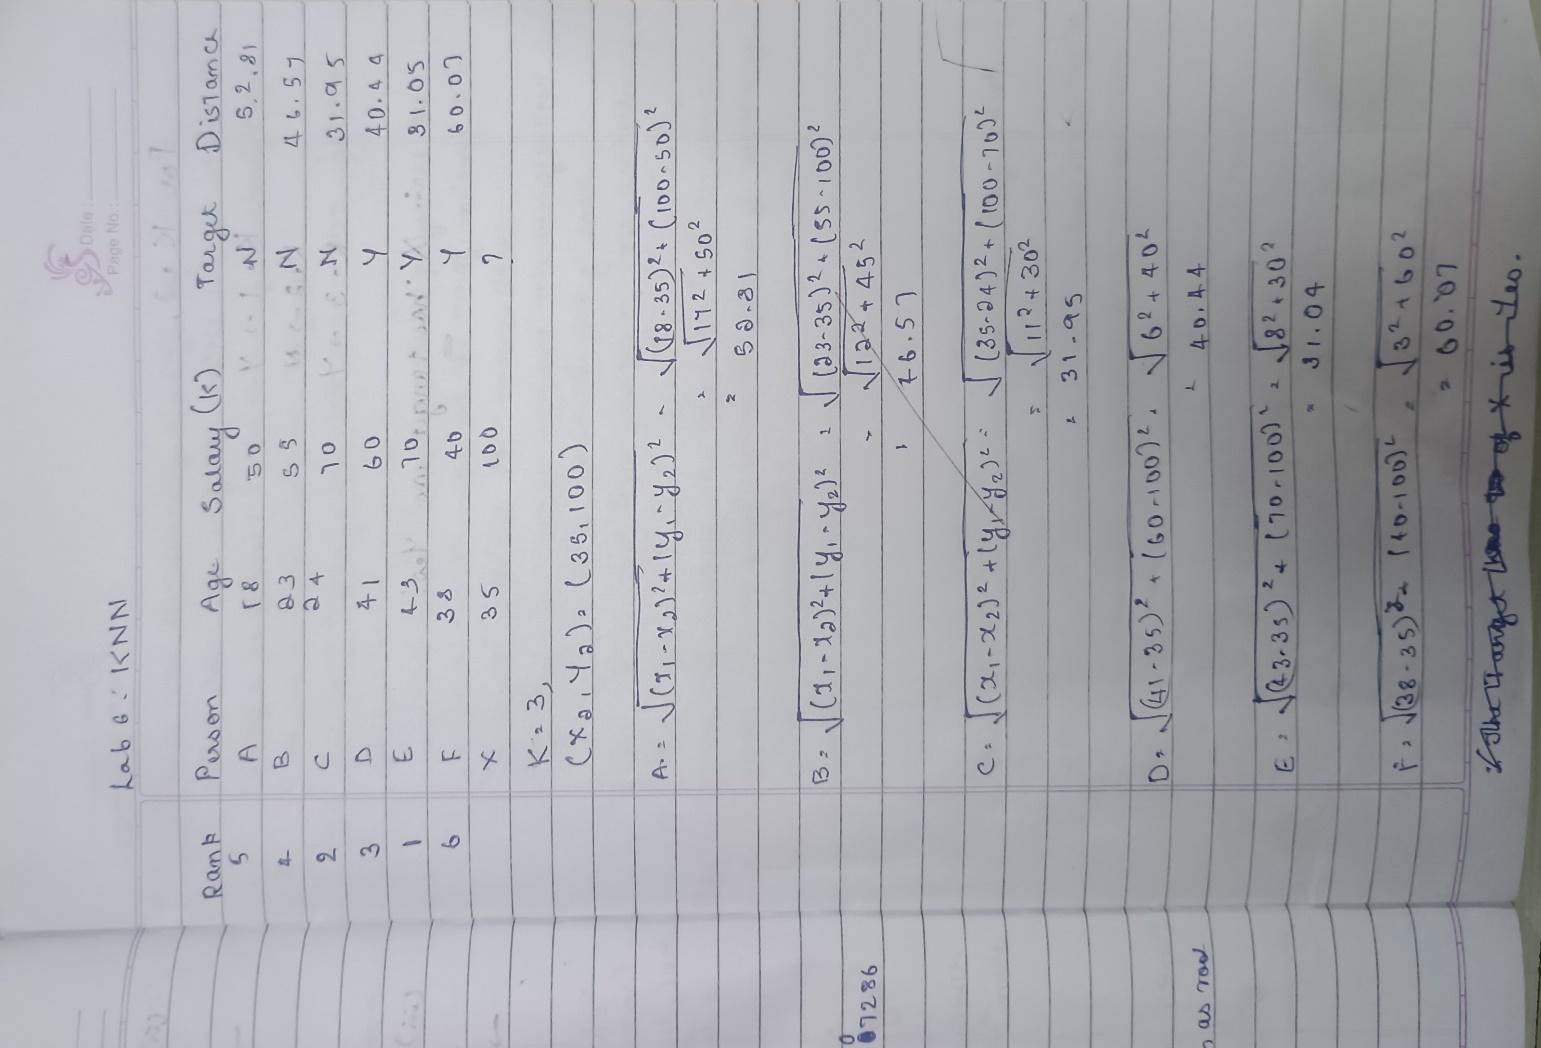 Date:
Page No.:
Lab 6: KNN
Rank Person Age Salary (K) Target Distance
5 A 18 50 N 52.81
4 B 23 55 N 46.57
2 C 24 70 N 31.95
3 D 41 60 Y 40.44
1 E 43 70 Y 31.05
6 F 38 40 Y 60.07
X 35 100 ?
K = 3,
(x2, y2) = (35, 100)
A = √(x1-x2)²+(y1-y2)² = √(18-35)²+(100-50)²
= √17²+50²
= 52.81
B = √(x1-x2)²+(y1-y2)² = √(23-35)²+(55-100)²
= √12²+45²
= 46.57
C = √(x1-x2)²+(y1-y2)² = √(35-24)²+(100-70)²
= √11²+30²
= 31.95
D = √(41-35)²+(60-100)² = √6²+40²
= 40.44
E = √(43-35)²+(70-100)² = √8²+30²
= 31.04
F = √(38-35)²+(40-100)² = √3²+60²
= 60.07
The target of X is Yes.
07286
as row